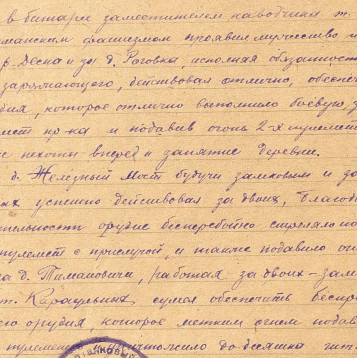 в батарее заместителем наводчика т.
манском фашизмом проявил мужество и
р. Десна и за д. Роговка, исполняя обязанност
заряжающего, действовал отлично, обеспеч
дия, которое отлично выполнило боевую з
мет пр-ка и подавив огонь 2-х пулемет
е пехоты вперед и занятие деревни.
д. Железный Мост будучи замковым и за
их успешно действовал за двоих, благод
тельности орудие бесперебойно стреляло по
пулемет с прислугой, и также подавило ог
за д. Тимановичи, работая за двоих - зам
т. Караульных, сумел обеспечить беспр
его орудия, которое метким огнем подав
пулемета уничтожило до десятка гит